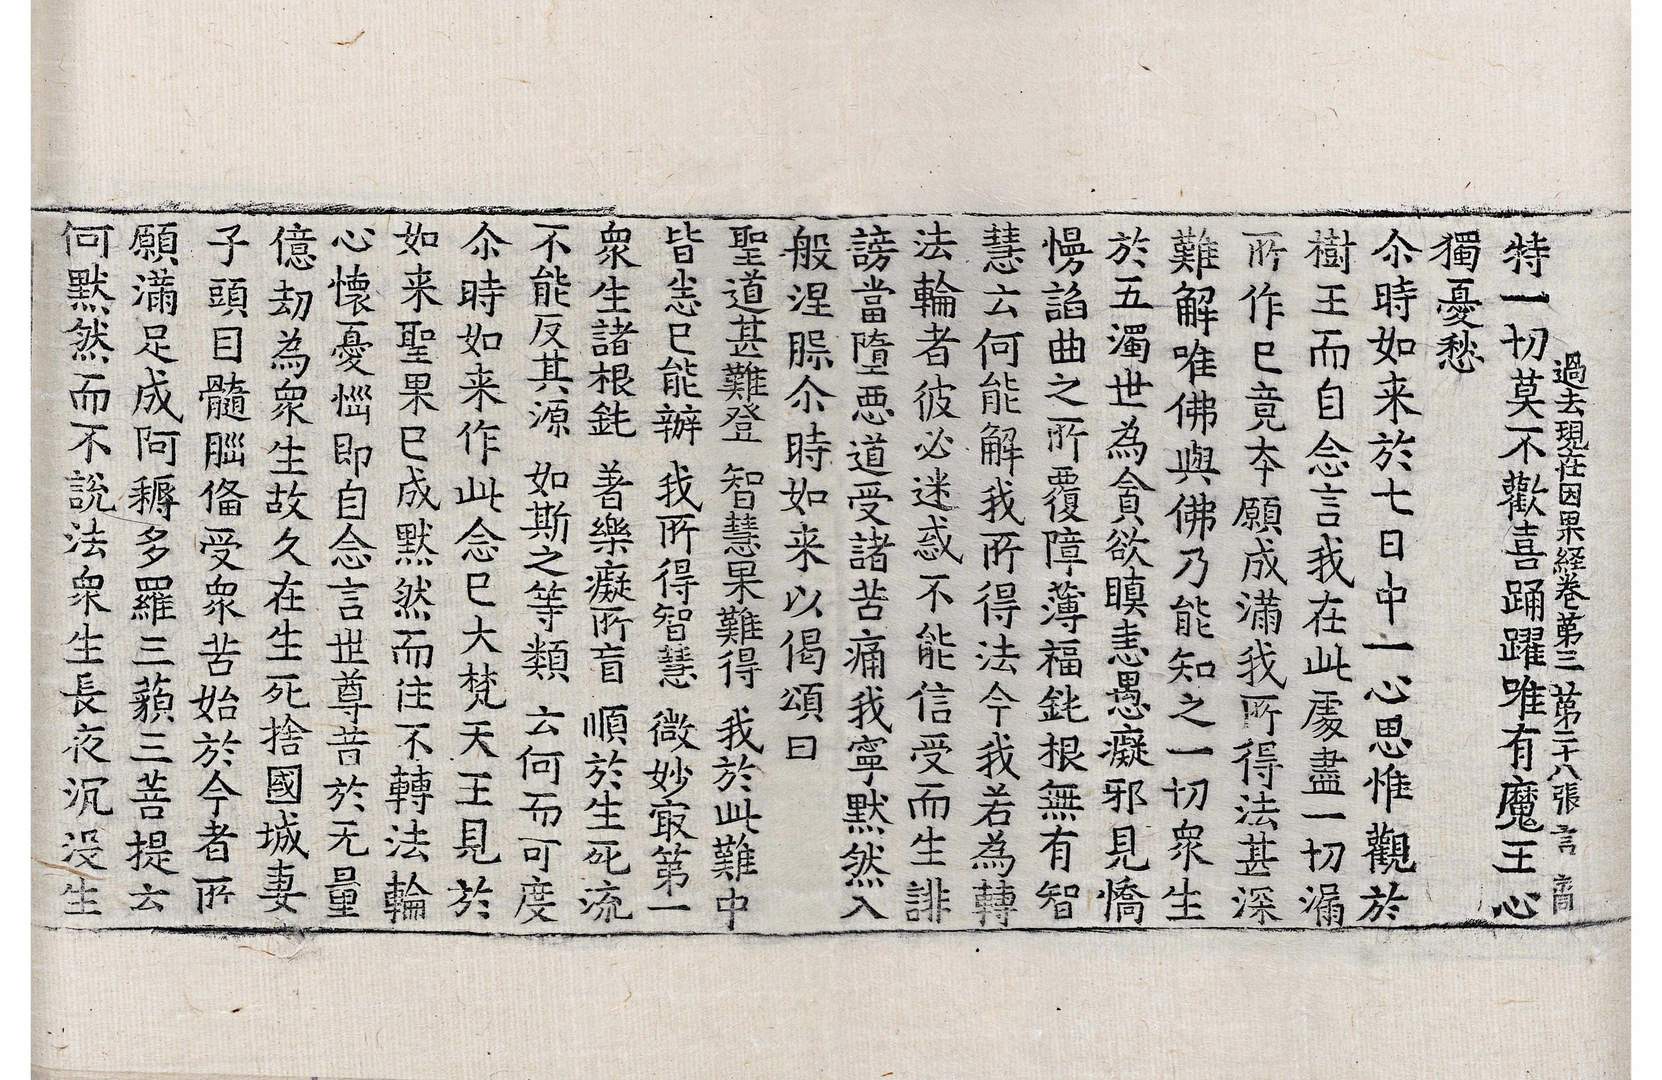 過去現在因果経卷第三 第二十八張 言
特一切莫不歡喜踊躍唯有魔王心
獨憂愁
尒時如来於七日中一心思惟觀於
樹王而自念言我在此處盡一切漏
所作已竟本願成滿我所得法甚深
難解唯佛與佛乃能知之一切衆生
於五濁世為貪欲瞋恚愚癡邪見憍
慢諂曲之所覆障薄福鈍根無有智
慧云何能解我所得法今我若為轉
法輪者彼必迷惑不能信受而生誹
謗當墮惡道受諸苦痛我寧默然入
般涅槃尒時如来以偈頌曰
聖道甚難登 智慧果難得 我於此難中
皆悉已能辦 我所得智慧 微妙㝡第一
衆生諸根鈍 著樂癡所盲 順於生死流
不能反其源 如斯之等類 云何而可度
尒時如来作此念已大梵天王見於
如来聖果已成默然而住不轉法輪
心懷憂惱即自念言世尊昔於无量
億劫為衆生故久在生死捨國城妻
子頭目髓腦俻受衆苦始於今者所
願滿足成阿耨多羅三藐三菩提云
何默然而不說法衆生長夜沉没生